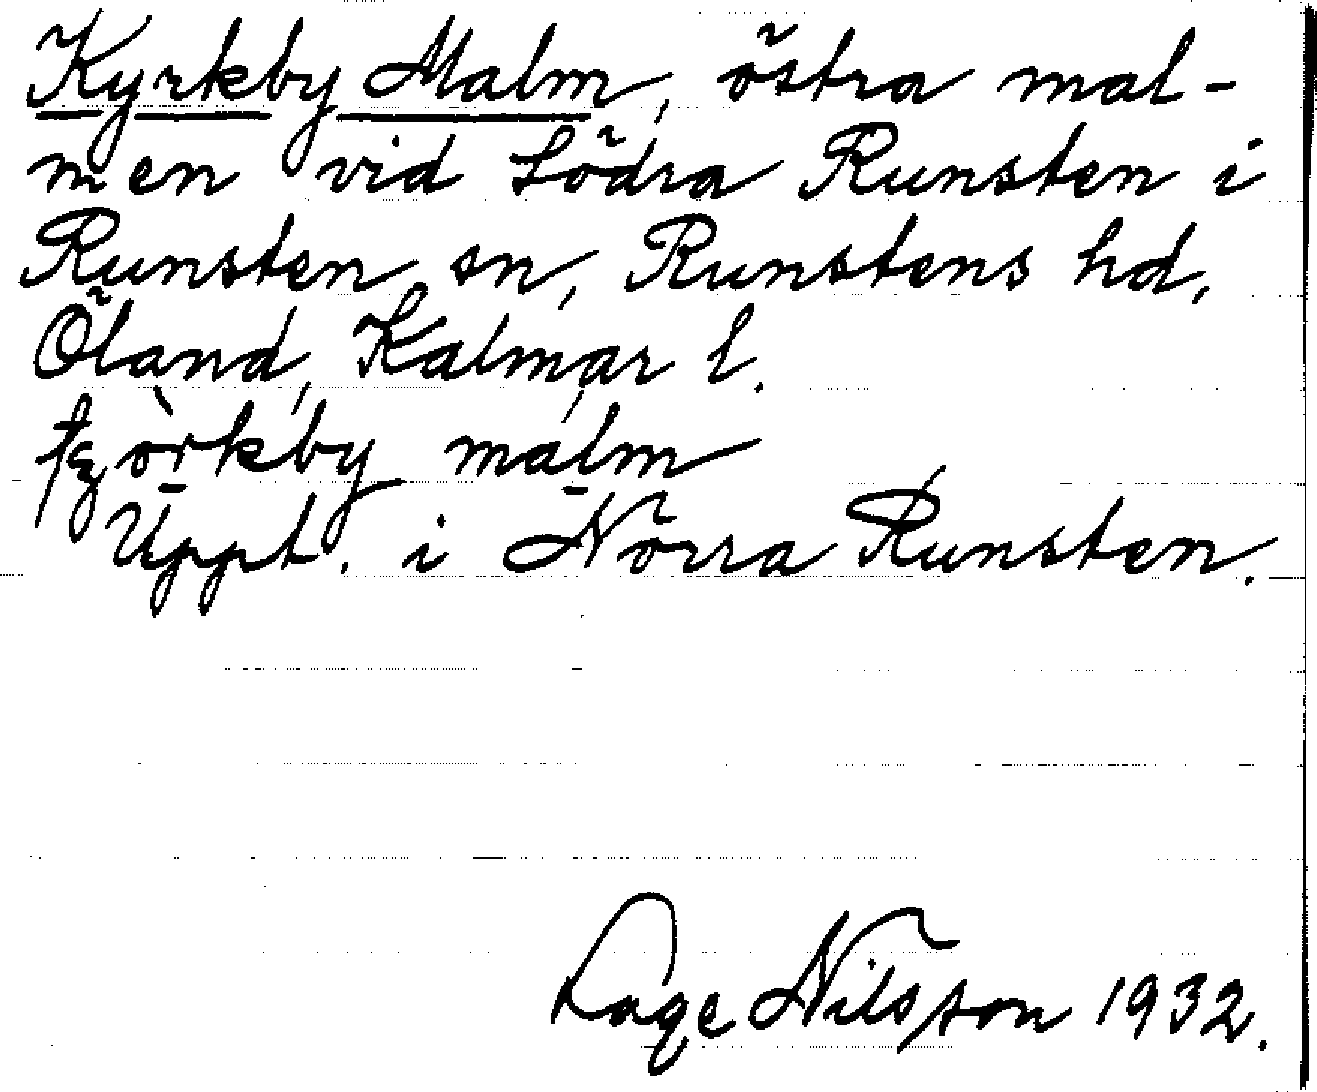 Kyrkby Malm, östra mal-
men vid Södra Runsten i
Runsten sn, Runstens hd,
Öland, Kalmar l.
malm
Uppt. i Norra Runsten.
Lage Nilsson 1932.